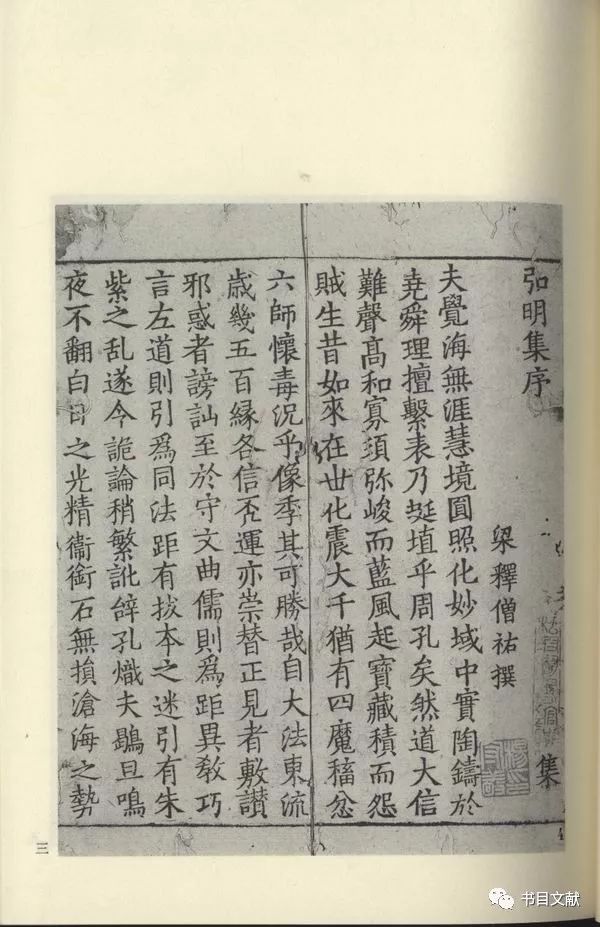 弘明集序
集
梁釋僧祐撰
夫覺海無涯慧境圓照化妙域中實陶鑄於
堯舜理擅繫表乃埏埴乎周孔矣然道大信
難聲高和寡須弥峻而藍風起寶藏積而怨
賊生昔如來在世化震大千猶有四魔稸忿
六師懷毒況乎像季其可勝哉自大法東流
歲幾五百緣各信否運亦崇替正見者敷讚
邪惑者謗訕至於守文曲儒則爲距異教巧
言左道則引爲同法距有拔本之迷引有朱
紫之乱遂令詭論稍繁訛辭孔熾夫鶡旦鳴
夜不翻白日之光精衞銜石無損滄海之勢
三
书目文献